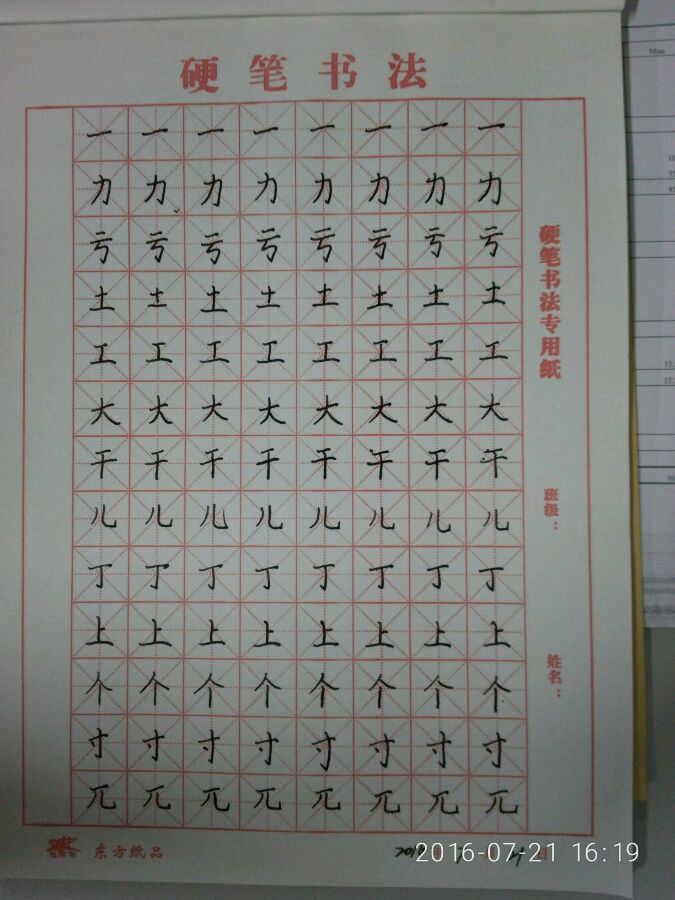 硬笔书法
一一一一一一一一
力力力力力力力力
亏亏亏亏亏亏亏亏
土土土土土土土土
工工工工工工工工
大大大大大大大大
干干干干干干干干
儿儿儿儿儿儿儿儿
丁丁丁丁丁丁丁丁
上上上上上上上上
个个个个个个个个
寸寸寸寸寸寸寸寸
兀兀兀兀兀兀兀兀
硬笔书法专用纸
班级：
姓名：
东方纸品
2016-07-21 16:19